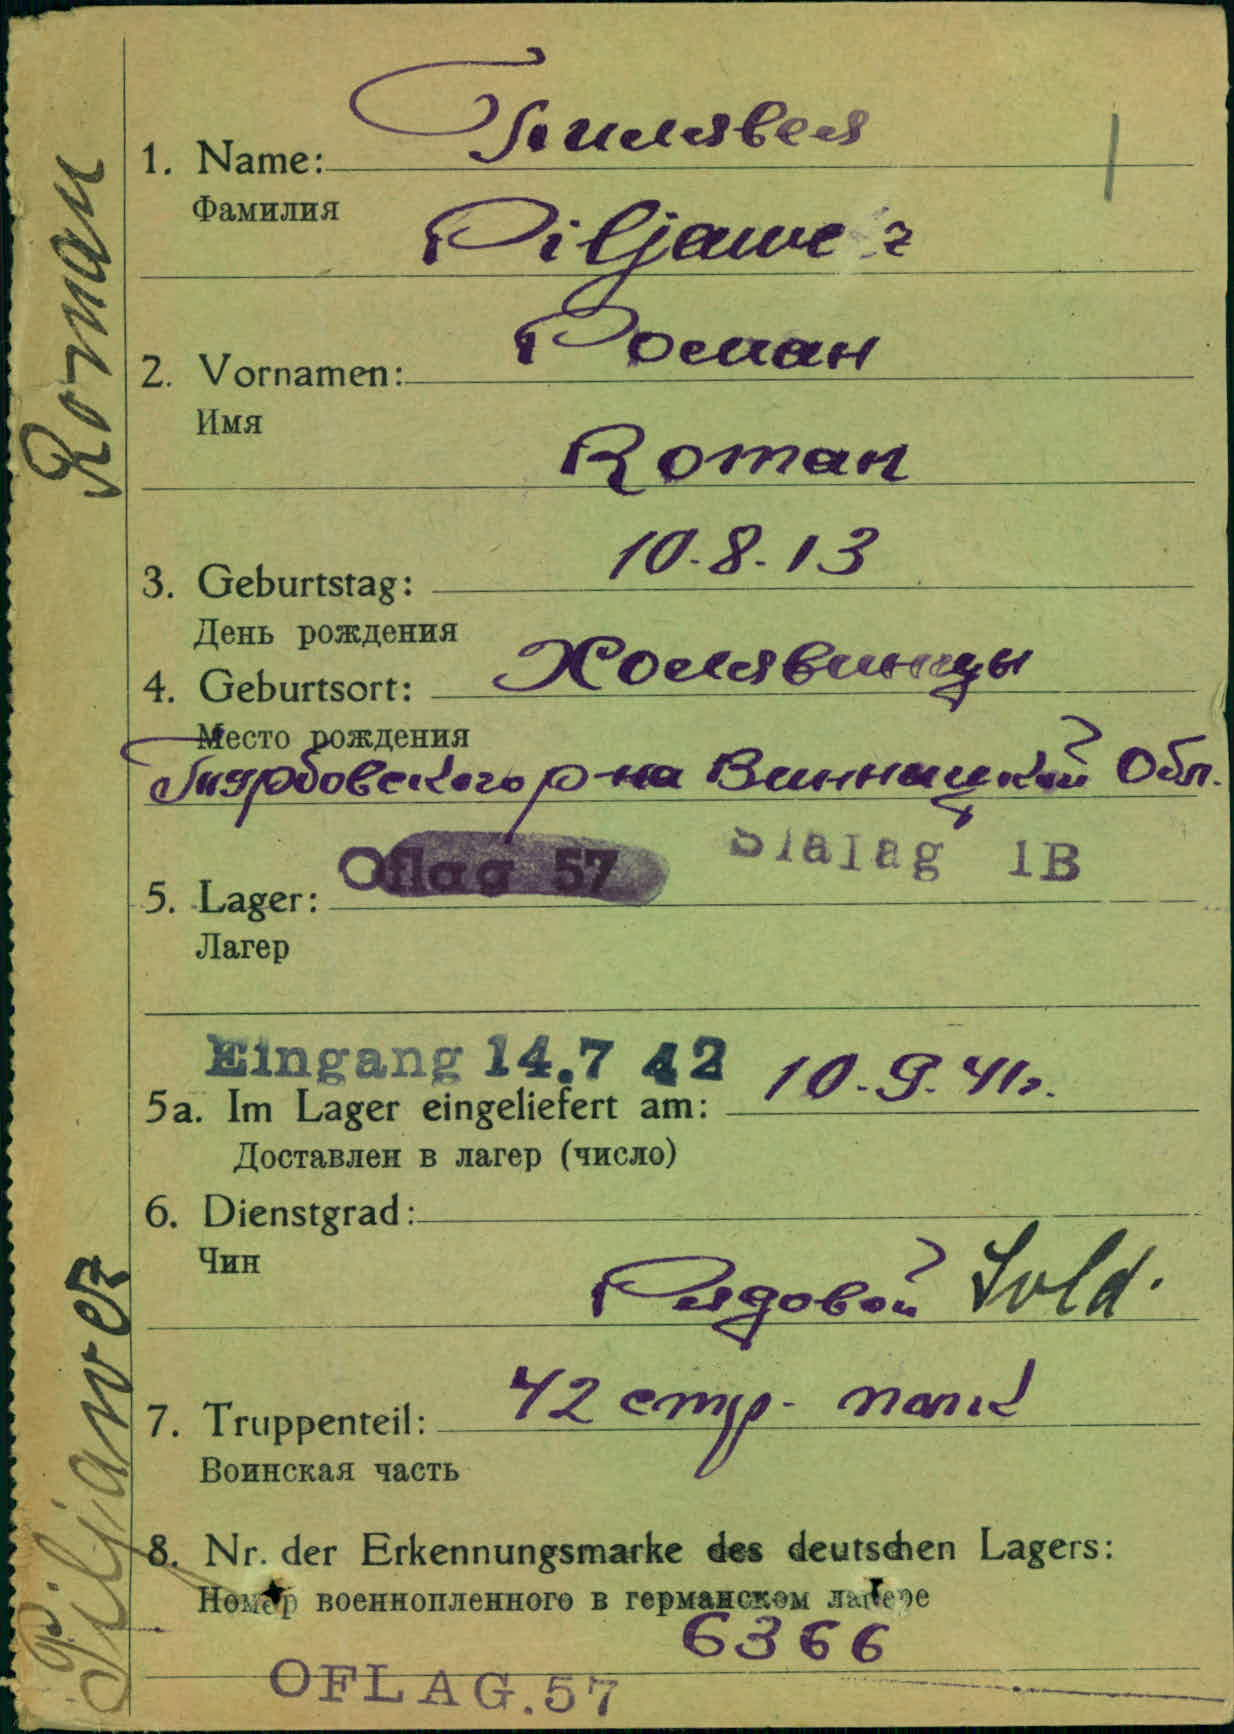 1. Name: Пилявец
Фамилия
Piljawez
2. Vornamen: Роман
Имя
Roman
3. Geburtstag: 10.8.13
День рождения
4. Geburtsort: Холявинцы
Место рождения
Турбовского р-на Винницкой Обл.
Oflag 57 Stalag 1B
5. Lager:
Лагер
Eingang 14.7 42
5a. Im Lager eingeliefert am: 10.9.41г.
Доставлен в лагер (число)
6. Dienstgrad:
Чин
Рядовой Sold.
7. Truppenteil: 42 стр. полк
Воинская часть
8. Nr. der Erkennungsmarke des deutschen Lagers:
Номер военнопленного в германском лагере
6366
OFLAG.57
Piljawez Roman